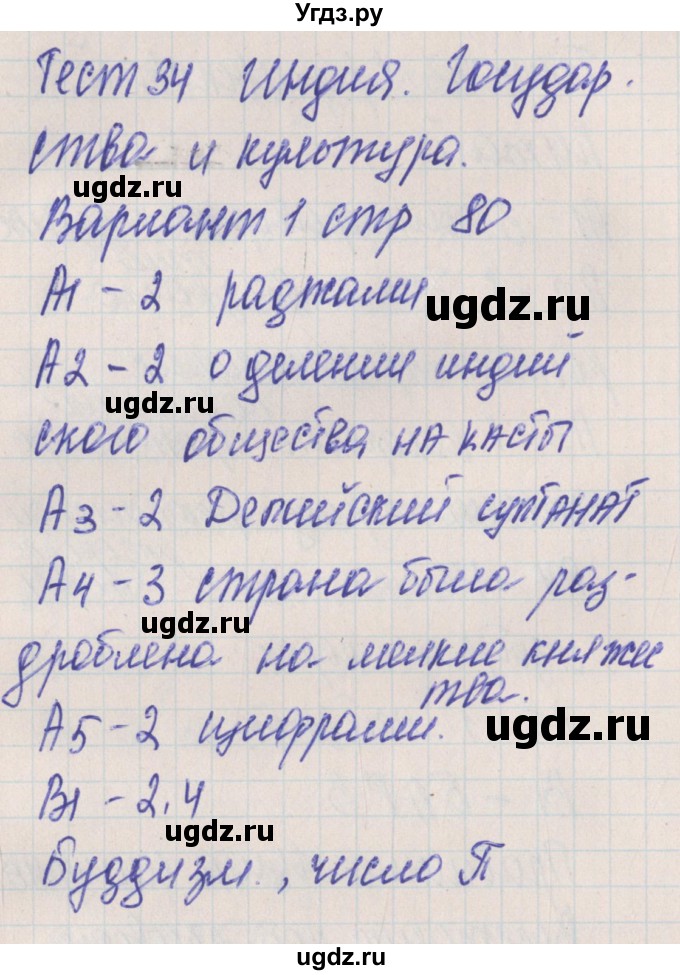 Угдз.ру
Тест 34 Индия. Государ.
ства и культура.
ugdz.ru
Вариант 1 стр 80
А1 - 2 раджами
ugdz.ru
А2 - 2 о делении индий
ugdz.ru
ского общества на касты
А3 - 2 Делийский султанат
А4 - 3 страна была раз-
ugdz.ru
дроблена на мелкие княжес
тва.
А5 - 2 цифрами.
ugdz.ru
В1 - 2,4
ugdz.ru
Буддизм., число П
ugdz.ru